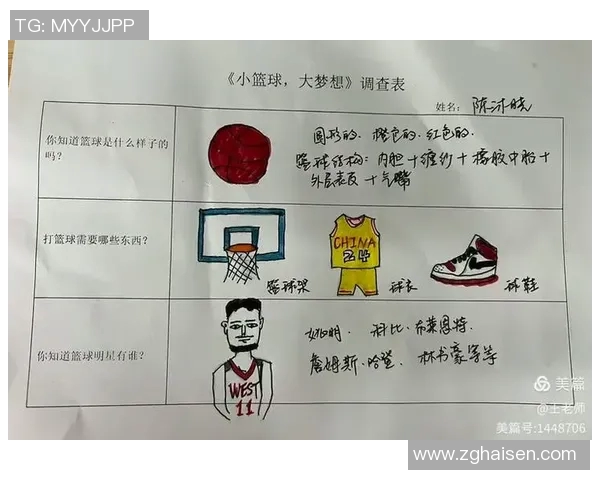 TG: MYYJJPP
《小篮球，大梦想》调查表
姓名：陈沐晓
你知道篮球是什么样子的
吗？
圆形的、橙色的、红色的、
篮球结构：内胆+缠纱+橡胶中胎+
外层表皮+气嘴
打篮球需要哪些东西？
CHINA
24
篮球架
球衣
球鞋
你知道篮球明星有谁？
WEST
11
姚明、科比·布莱恩特、
詹姆斯·哈登、林书豪等等
美篇
@王老师
美篇号:1448706
www.zghaisen.com